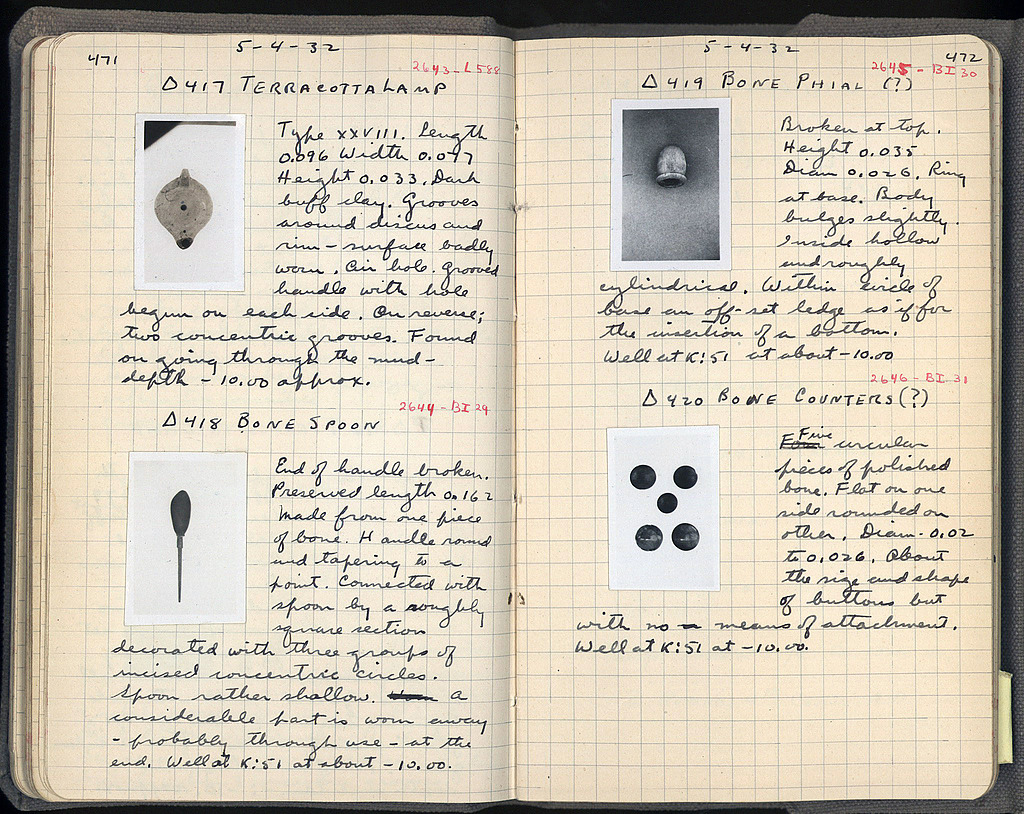 471
5-4-32
2643-L588
Δ417 TERRACOTTA LAMP
Type XXVIII. Length
0.096 Width 0.077
Height 0.033. Dark
buff clay. Grooves
around discus and
rim - surface badly
worn. Air hole. Grooved
handle with hole
begun on each side. On reverse;
two concentric grooves. Found
on going through the mud-
depth -10.00 approx.
2644-BI 29
Δ418 BONE SPOON
End of handle broken.
Preserved length 0.162
Made from one piece
of bone. Handle round
and tapering to a
point. Connected with
spoon by a roughly
square section
decorated with three groups of
incised concentric circles.
Spoon rather shallow. a
considerable part is worn away
- probably through use - at the
end. Well at K:51 at about -10.00.
5-4-32
472
2645-BI 30
Δ419 BONE PHIAL (?)
Broken at top.
Height 0.035
Diam 0.026. Ring
at base. Body
bulges slightly.
Inside hollow
and roughly
cylindrical. Within circle of
base an off-set ledge as if for
the insertion of a bottom.
Well at K:51 at about -10.00
2646-BI 31
Δ420 BONE COUNTERS (?)
Five circular
pieces of polished
bone. Flat on one
side rounded on
other. Diam. 0.02
to 0.026. About
the size and shape
of buttons but
with no means of attachment.
Well at K:51 at -10.00.